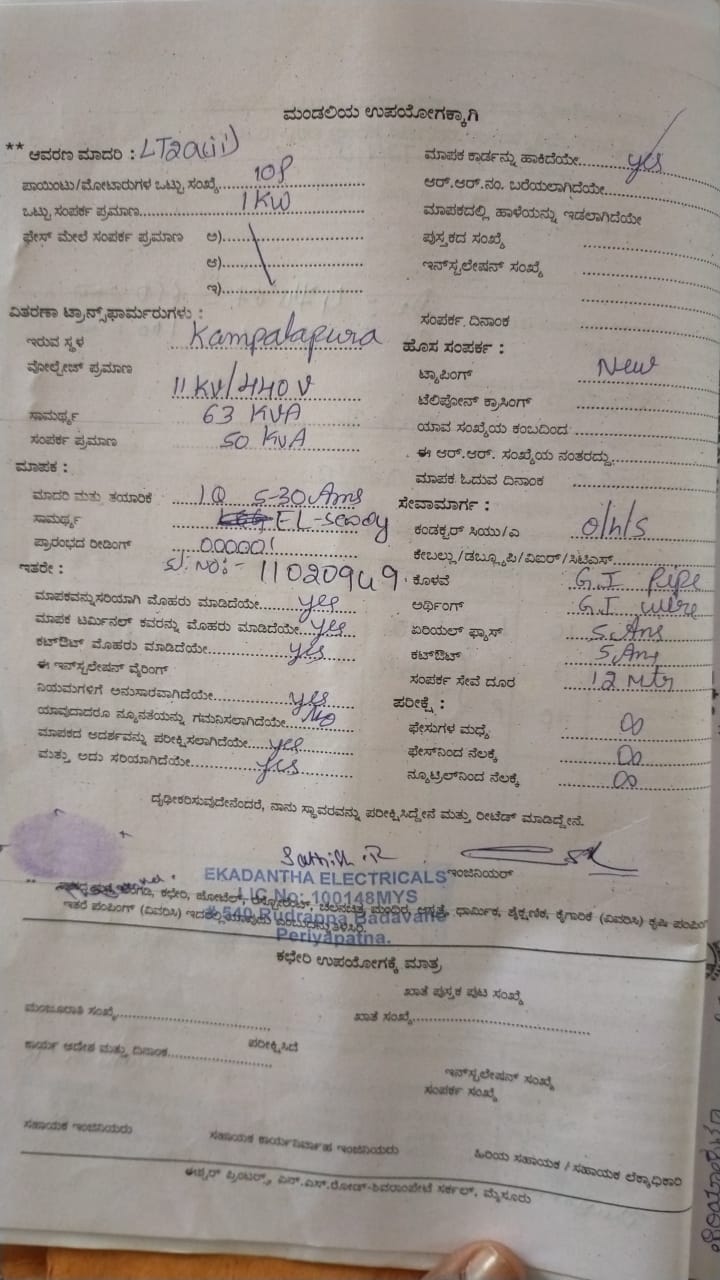 ಮಂಡಲಿಯ ಉಪಯೋಗಕ್ಕಾಗಿ
** ಆವರಣ ಮಾದರಿ : LT2a(ii)
ಪಾಯಿಂಟು/ಮೋಟಾರುಗಳ ಒಟ್ಟು ಸಂಖ್ಯೆ 10P
ಒಟ್ಟು ಸಂಪರ್ಕ ಪ್ರಮಾಣ 1 KW
ಫೇಸ್ ಮೇಲೆ ಸಂಪರ್ಕ ಪ್ರಮಾಣ ಅ)
ಆ)
ಇ)
ವಿತರಣಾ ಟ್ರಾನ್ಸ್‌ಫಾರ್ಮರುಗಳು :
ಇರುವ ಸ್ಥಳ Kampalapura
ವೋಲ್ಟೇಜ್ ಪ್ರಮಾಣ
11 KV/440 V
ಸಾಮರ್ಥ್ಯ 63 KVA
ಸಂಪರ್ಕ ಪ್ರಮಾಣ 50 KVA
ಮಾಪಕ :
ಮಾದರಿ ಮತ್ತು ತಯಾರಿಕೆ 1Q 5-30 Ams
ಸಾಮರ್ಥ್ಯ
ಪ್ರಾರಂಭದ ರೀಡಿಂಗ್ 00000!
ಇತರೇ : Sl: No:- 11020949
ಮಾಪಕವನ್ನು ಸರಿಯಾಗಿ ಮೊಹರು ಮಾಡಿದೆಯೇ yes
ಮಾಪಕ ಟರ್ಮಿನಲ್ ಕವರನ್ನು ಮೊಹರು ಮಾಡಿದೆಯೇ yes
ಕಟ್‌ಔಟ್ ಮೊಹರು ಮಾಡಿದೆಯೇ yes
ಈ ಇನ್‌ಸ್ಟಲೇಷನ್ ವೈರಿಂಗ್
ನಿಯಮಗಳಿಗೆ ಅನುಸಾರವಾಗಿದೆಯೇ yes
ಯಾವುದಾದರೂ ನ್ಯೂನತೆಯನ್ನು ಗಮನಿಸಲಾಗಿದೆಯೇ No
ಮಾಪಕದ ಆದರ್ಶವನ್ನು ಪರೀಕ್ಷಿಸಲಾಗಿದೆಯೇ yes
ಮತ್ತು ಅದು ಸರಿಯಾಗಿದೆಯೇ yes
ಮಾಪಕ ಕಾರ್ಡನ್ನು ಹಾಕಿದೆಯೇ yes
ಆರ್.ಆರ್.ನಂ. ಬರೆಯಲಾಗಿದೆಯೇ
ಮಾಪಕದಲ್ಲಿ ಹಾಳೆಯನ್ನು ಇಡಲಾಗಿದೆಯೇ
ಪುಸ್ತಕದ ಸಂಖ್ಯೆ
ಇನ್‌ಸ್ಟಲೇಷನ್ ಸಂಖ್ಯೆ
ಸಂಪರ್ಕ ದಿನಾಂಕ
ಹೊಸ ಸಂಪರ್ಕ :
ಟ್ಯಾಪಿಂಗ್ New
ಟೆಲಿಪೋನ್ ಕ್ರಾಸಿಂಗ್
ಯಾವ ಸಂಖ್ಯೆಯ ಕಂಬದಿಂದ
ಈ ಆರ್.ಆರ್. ಸಂಖ್ಯೆಯ ನಂತರದ್ದು
ಮಾಪಕ ಓದುವ ದಿನಾಂಕ
ಸೇವಾಮಾರ್ಗ :
ಕಂಡಕ್ಟರ್ ಸಿಯು/ಎ o/h/s
ಕೇಬಲ್ಲು/ಡಬ್ಲ್ಯೂಪಿ/ವಿಐರ್/ಸಿಟಿಎಸ್
ಕೊಳವೆ G.I pipe
ಅರ್ಥಿಂಗ್ G.I wire
ಏರಿಯಲ್ ಫ್ಯೂಸ್ 5 Ams
ಕಟ್‌ಔಟ್ 5 Ams
ಸಂಪರ್ಕ ಸೇವೆ ದೂರ 12 Mtr
ಪರೀಕ್ಷೆ :
ಫೇಸುಗಳ ಮಧ್ಯೆ ∞
ಫೇಸ್‌ನಿಂದ ನೆಲಕ್ಕೆ ∞
ನ್ಯೂಟ್ರಲ್‌ನಿಂದ ನೆಲಕ್ಕೆ ∞
ದೃಢೀಕರಿಸುವುದೇನೆಂದರೆ, ನಾನು ಸ್ಥಾವರವನ್ನು ಪರೀಕ್ಷಿಸಿದ್ದೇನೆ ಮತ್ತು ರೀಟೆಡ್ ಮಾಡಿದ್ದೇನೆ.
ಇಂಜಿನಿಯರ್
EKADANTHA ELECTRICALS
LIC No: 100148MYS
# 540 Rudrappa Badavane
Periyapatna.
ಕಛೇರಿ, ಹೋಟೆಲ್, ರೆಸ್ಟೋರೆಂಟ್, ಚಲನಚಿತ್ರ ಮಂದಿರ, ಆಸ್ಪತ್ರೆ, ಧಾರ್ಮಿಕ, ಶೈಕ್ಷಣಿಕ, ಕೈಗಾರಿಕೆ (ವಿವರಿಸಿ) ಕೃಷಿ ಪಂಪಿಂಗ್
ಇತರೆ ಪಂಪಿಂಗ್ (ವಿವರಿಸಿ) ಇದರಲ್ಲಿ ಯಾವುದು ಎಂಬುದನ್ನು ತಿಳಿಸಿರಿ.
ಕಛೇರಿ ಉಪಯೋಗಕ್ಕೆ ಮಾತ್ರ
ಮಂಜೂರಾತಿ ಸಂಖ್ಯೆ
ಖಾತೆ ಪುಸ್ತಕ ಪುಟ ಸಂಖ್ಯೆ
ಖಾತೆ ಸಂಖ್ಯೆ
ಕಾರ್ಯ ಆದೇಶ ಮತ್ತು ದಿನಾಂಕ
ಪರೀಕ್ಷಿಸಿದೆ
ಇನ್‌ಸ್ಟಲೇಷನ್ ಸಂಖ್ಯೆ
ಸಂಪರ್ಕ ಸಂಖ್ಯೆ
ಸಹಾಯಕ ಇಂಜಿನಿಯರು
ಸಹಾಯಕ ಕಾರ್ಯನಿರ್ವಾಹ ಇಂಜಿನಿಯರು
ಹಿರಿಯ ಸಹಾಯಕ / ಸಹಾಯಕ ಲೆಕ್ಕಾಧಿಕಾರಿ
ಈಶ್ವರ್ ಪ್ರಿಂಟರ್ಸ್, ಎನ್.ಎಸ್.ರೋಡ್-ಶಿವರಾಂಪೇಟೆ ಸರ್ಕಲ್, ಮೈಸೂರು